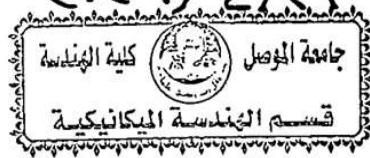 جامعة الموصل
كلية الهندسة
قسم الهندسة الميكانيكية